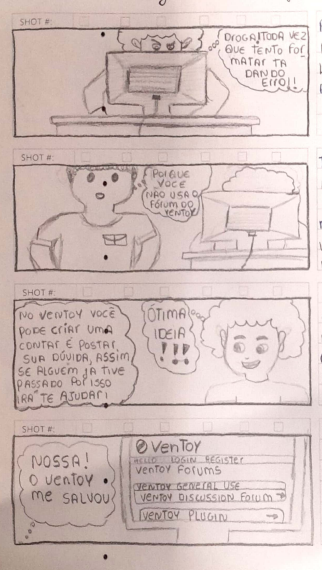 SHOT #:
DROGA!TODA VEZ
QUE TENTO FOR
MATAR TA
DANDO
ERRO!!
SHOT #:
PORQUE
VOCÊ
NÃO USA O
FÓRUM DO
VENTOY
SHOT #:
NO VENTOY VOCÊ
PODE CRIAR UMA
CONTAR E POSTAR
SUA DÚVIDA, ASSIM
SE ALGUEM JA TIVE
PASSADO POR ISSO
IRA TE AJUDAR!
ÓTIMA
IDEIA
!!!
SHOT #:
NOSSA!
O VENTOY
ME SALVOU
VENTOY
HELLO LOGIN REGISTER
VENTOY FORUMS
VENTOY GENERAL USE
VENTOY DISCUSSION FORUM
VENTOY PLUGIN